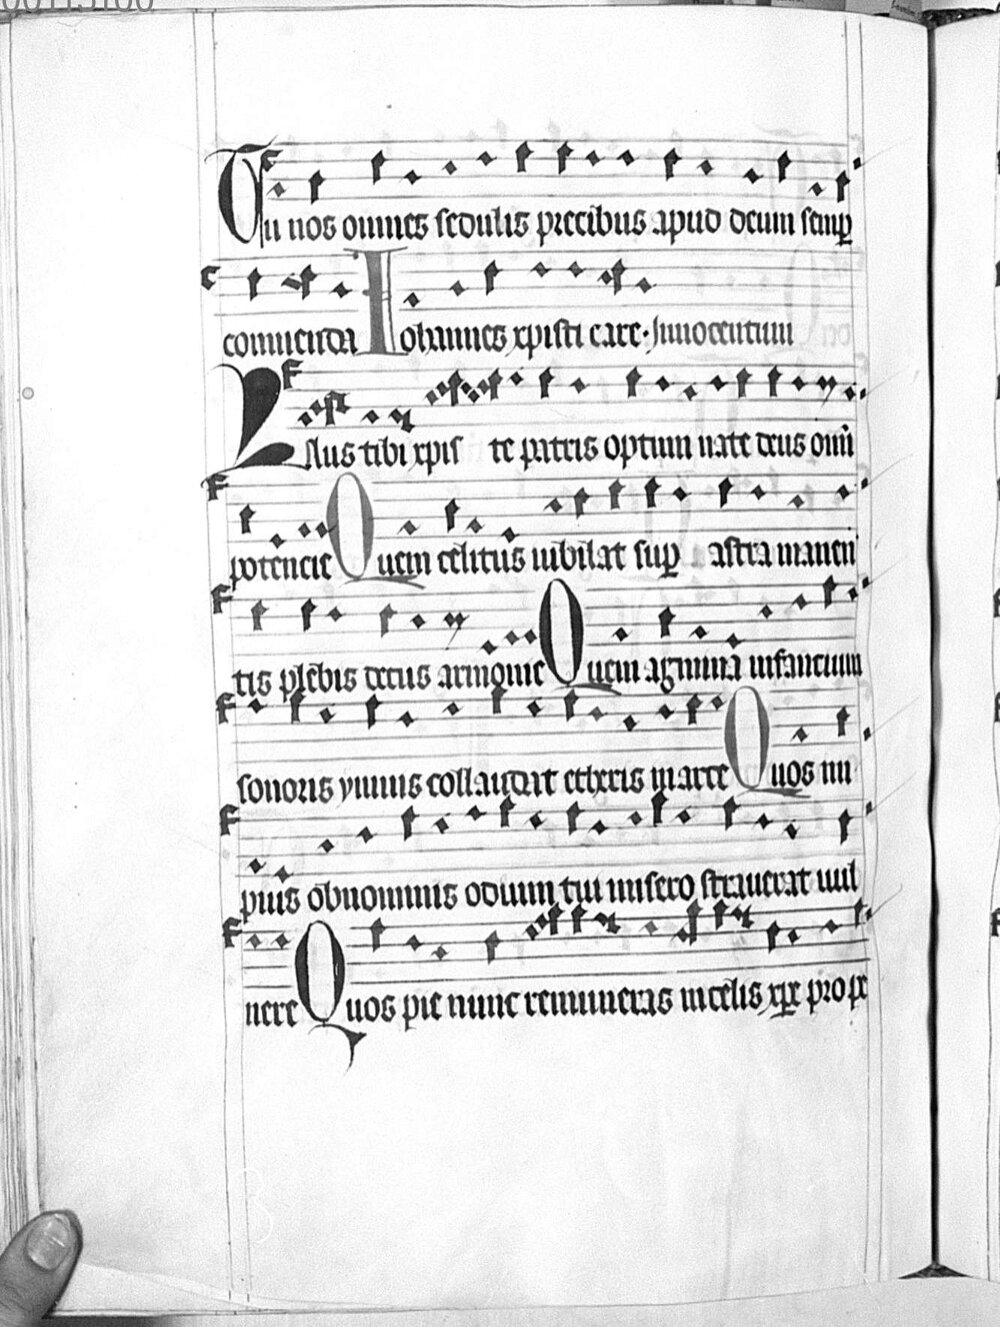 Tu nos omnes sedulis precibus apud deum semp
commenda Iohannes xpisti care. Innocentum
Laus tibi xpis te patris optimi nate deus omi
potencie Quem celitus iubilat sup astra manen
tis plebis decus armonie Quem agmina infancium
sonoris ymnis collaudant etheris in arce Quos im
pius ob nominis odium tui misero strauerat uul
nere Quos pie nunc remuneras in celis xpe pro pe